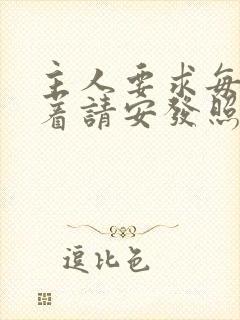 主人要求每
着請安發照
逗比色